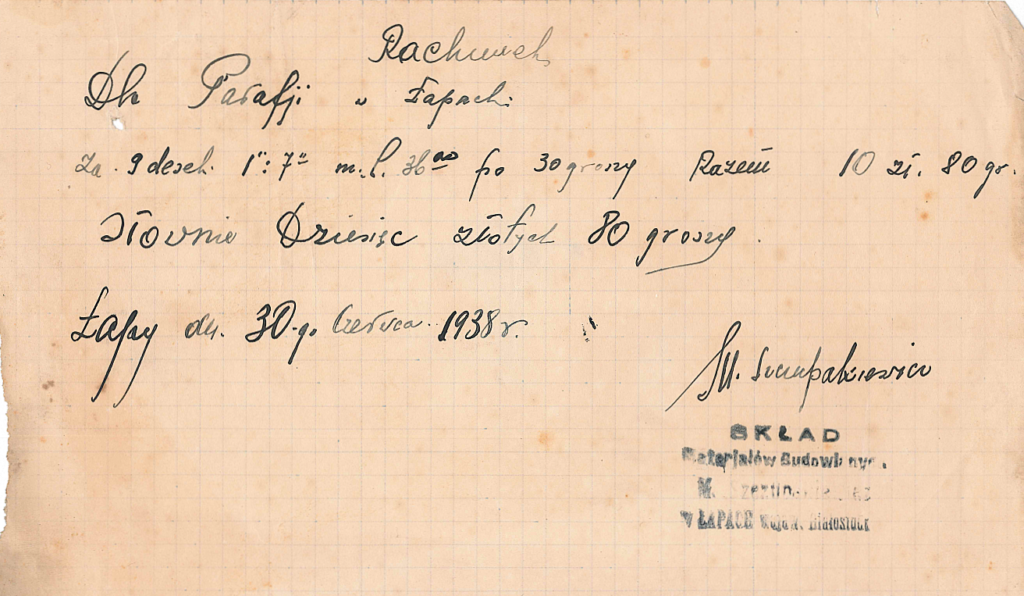 Rachunek
Dla Parafji w Łapach.
Za 9 desek 1":7" m.l. 36⁰⁰ po 30 groszy Razem 10 zł. 80 gr.
Słownie Dziesięc złotych 80 groszy.
Łapy dn. 30-go Czerwca 1938 r.
M.
SKŁAD
Materjałów Budowlanych
M.
w ŁAPACH wojew. Białostock